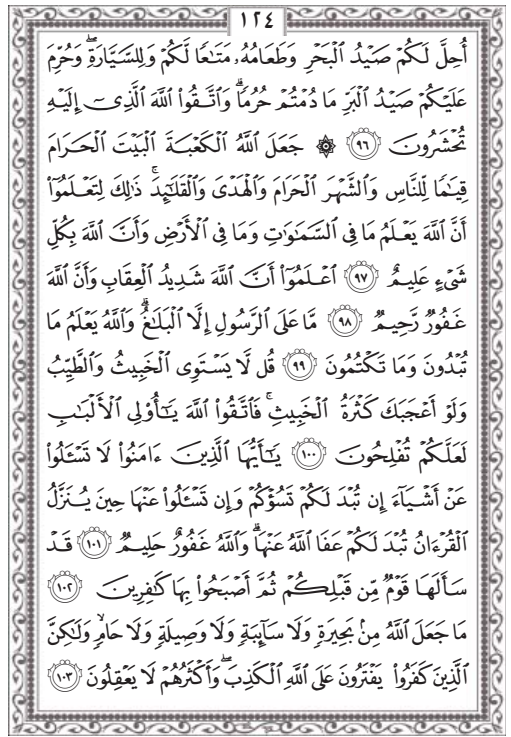 ١٢٤
أُحِلَّ لَكُمْ صَيْدُ ٱلْبَحْرِ وَطَعَامُهُۥ مَتَـٰعًا لَّكُمْ وَلِلسَّيَّارَةِ ۖ وَحُرِّمَ
عَلَيْكُمْ صَيْدُ ٱلْبَرِّ مَا دُمْتُمْ حُرُمًا ۗ وَٱتَّقُوا۟ ٱللَّهَ ٱلَّذِىٓ إِلَيْهِ
تُحْشَرُونَ ٩٦ ۞ جَعَلَ ٱللَّهُ ٱلْكَعْبَةَ ٱلْبَيْتَ ٱلْحَرَامَ
قِيَـٰمًا لِّلنَّاسِ وَٱلشَّهْرَ ٱلْحَرَامَ وَٱلْهَدْىَ وَٱلْقَلَـٰٓئِدَ ۚ ذَٰلِكَ لِتَعْلَمُوٓا۟
أَنَّ ٱللَّهَ يَعْلَمُ مَا فِى ٱلسَّمَـٰوَٰتِ وَمَا فِى ٱلْأَرْضِ وَأَنَّ ٱللَّهَ بِكُلِّ
شَىْءٍ عَلِيمٌ ٩٧ ٱعْلَمُوٓا۟ أَنَّ ٱللَّهَ شَدِيدُ ٱلْعِقَابِ وَأَنَّ ٱللَّهَ
غَفُورٌ رَّحِيمٌ ٩٨ مَّا عَلَى ٱلرَّسُولِ إِلَّا ٱلْبَلَـٰغُ ۗ وَٱللَّهُ يَعْلَمُ مَا
تُبْدُونَ وَمَا تَكْتُمُونَ ٩٩ قُل لَّا يَسْتَوِى ٱلْخَبِيثُ وَٱلطَّيِّبُ
وَلَوْ أَعْجَبَكَ كَثْرَةُ ٱلْخَبِيثِ ۚ فَٱتَّقُوا۟ ٱللَّهَ يَـٰٓأُو۟لِى ٱلْأَلْبَـٰبِ
لَعَلَّكُمْ تُفْلِحُونَ ١٠٠ يَـٰٓأَيُّهَا ٱلَّذِينَ ءَامَنُوا۟ لَا تَسْـَٔلُوا۟
عَنْ أَشْيَآءَ إِن تُبْدَ لَكُمْ تَسُؤْكُمْ وَإِن تَسْـَٔلُوا۟ عَنْهَا حِينَ يُنَزَّلُ
ٱلْقُرْءَانُ تُبْدَ لَكُمْ عَفَا ٱللَّهُ عَنْهَا ۗ وَٱللَّهُ غَفُورٌ حَلِيمٌ ١٠١ قَدْ
سَأَلَهَا قَوْمٌ مِّن قَبْلِكُمْ ثُمَّ أَصْبَحُوا۟ بِهَا كَـٰفِرِينَ ١٠٢
مَا جَعَلَ ٱللَّهُ مِنۢ بَحِيرَةٍ وَلَا سَآئِبَةٍ وَلَا وَصِيلَةٍ وَلَا حَامٍ ۙ وَلَـٰكِنَّ
ٱلَّذِينَ كَفَرُوا۟ يَفْتَرُونَ عَلَى ٱللَّهِ ٱلْكَذِبَ ۖ وَأَكْثَرُهُمْ لَا يَعْقِلُونَ ١٠٣